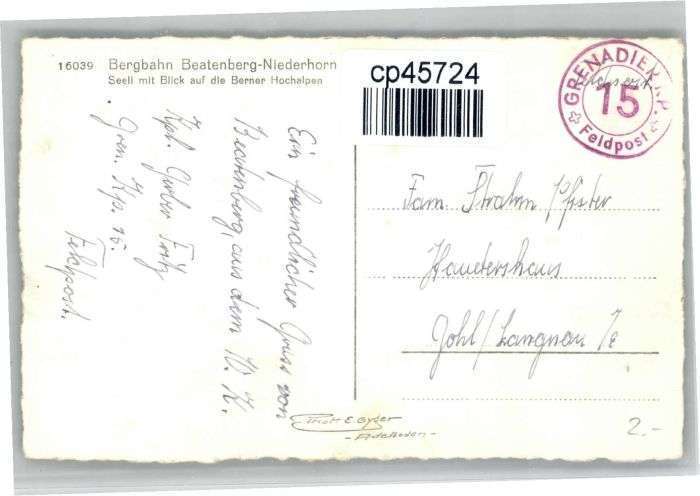 16039 Bergbahn Beatenberg-Niederhorn
Seeli mit Blick auf die Berner Hochalpen
cp45724
GRENADIER KP.
15
Feldpost
Ein freundlicher Gruss von
Beatenberg, aus dem W.K.
Kpl. Gerber Fritz
Gren. Kp. 15.
Feldpost.
Fam Strahm Pfister
Hauetershaus
Gohl/Langnau i/E
Phot. E. Gyger
- Adelboden -
2.-